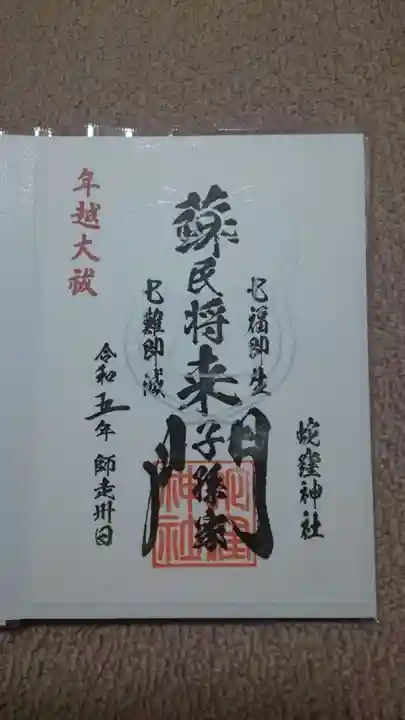 蛇窪神社
七福即生
蘇民将来子孫家門
七難即滅
年越大祓
令和五年 師走卅日
蛇窪神社